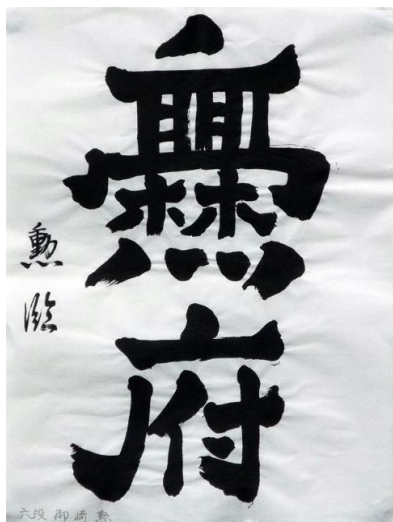 無府
勲臨
六段 御崎 勲